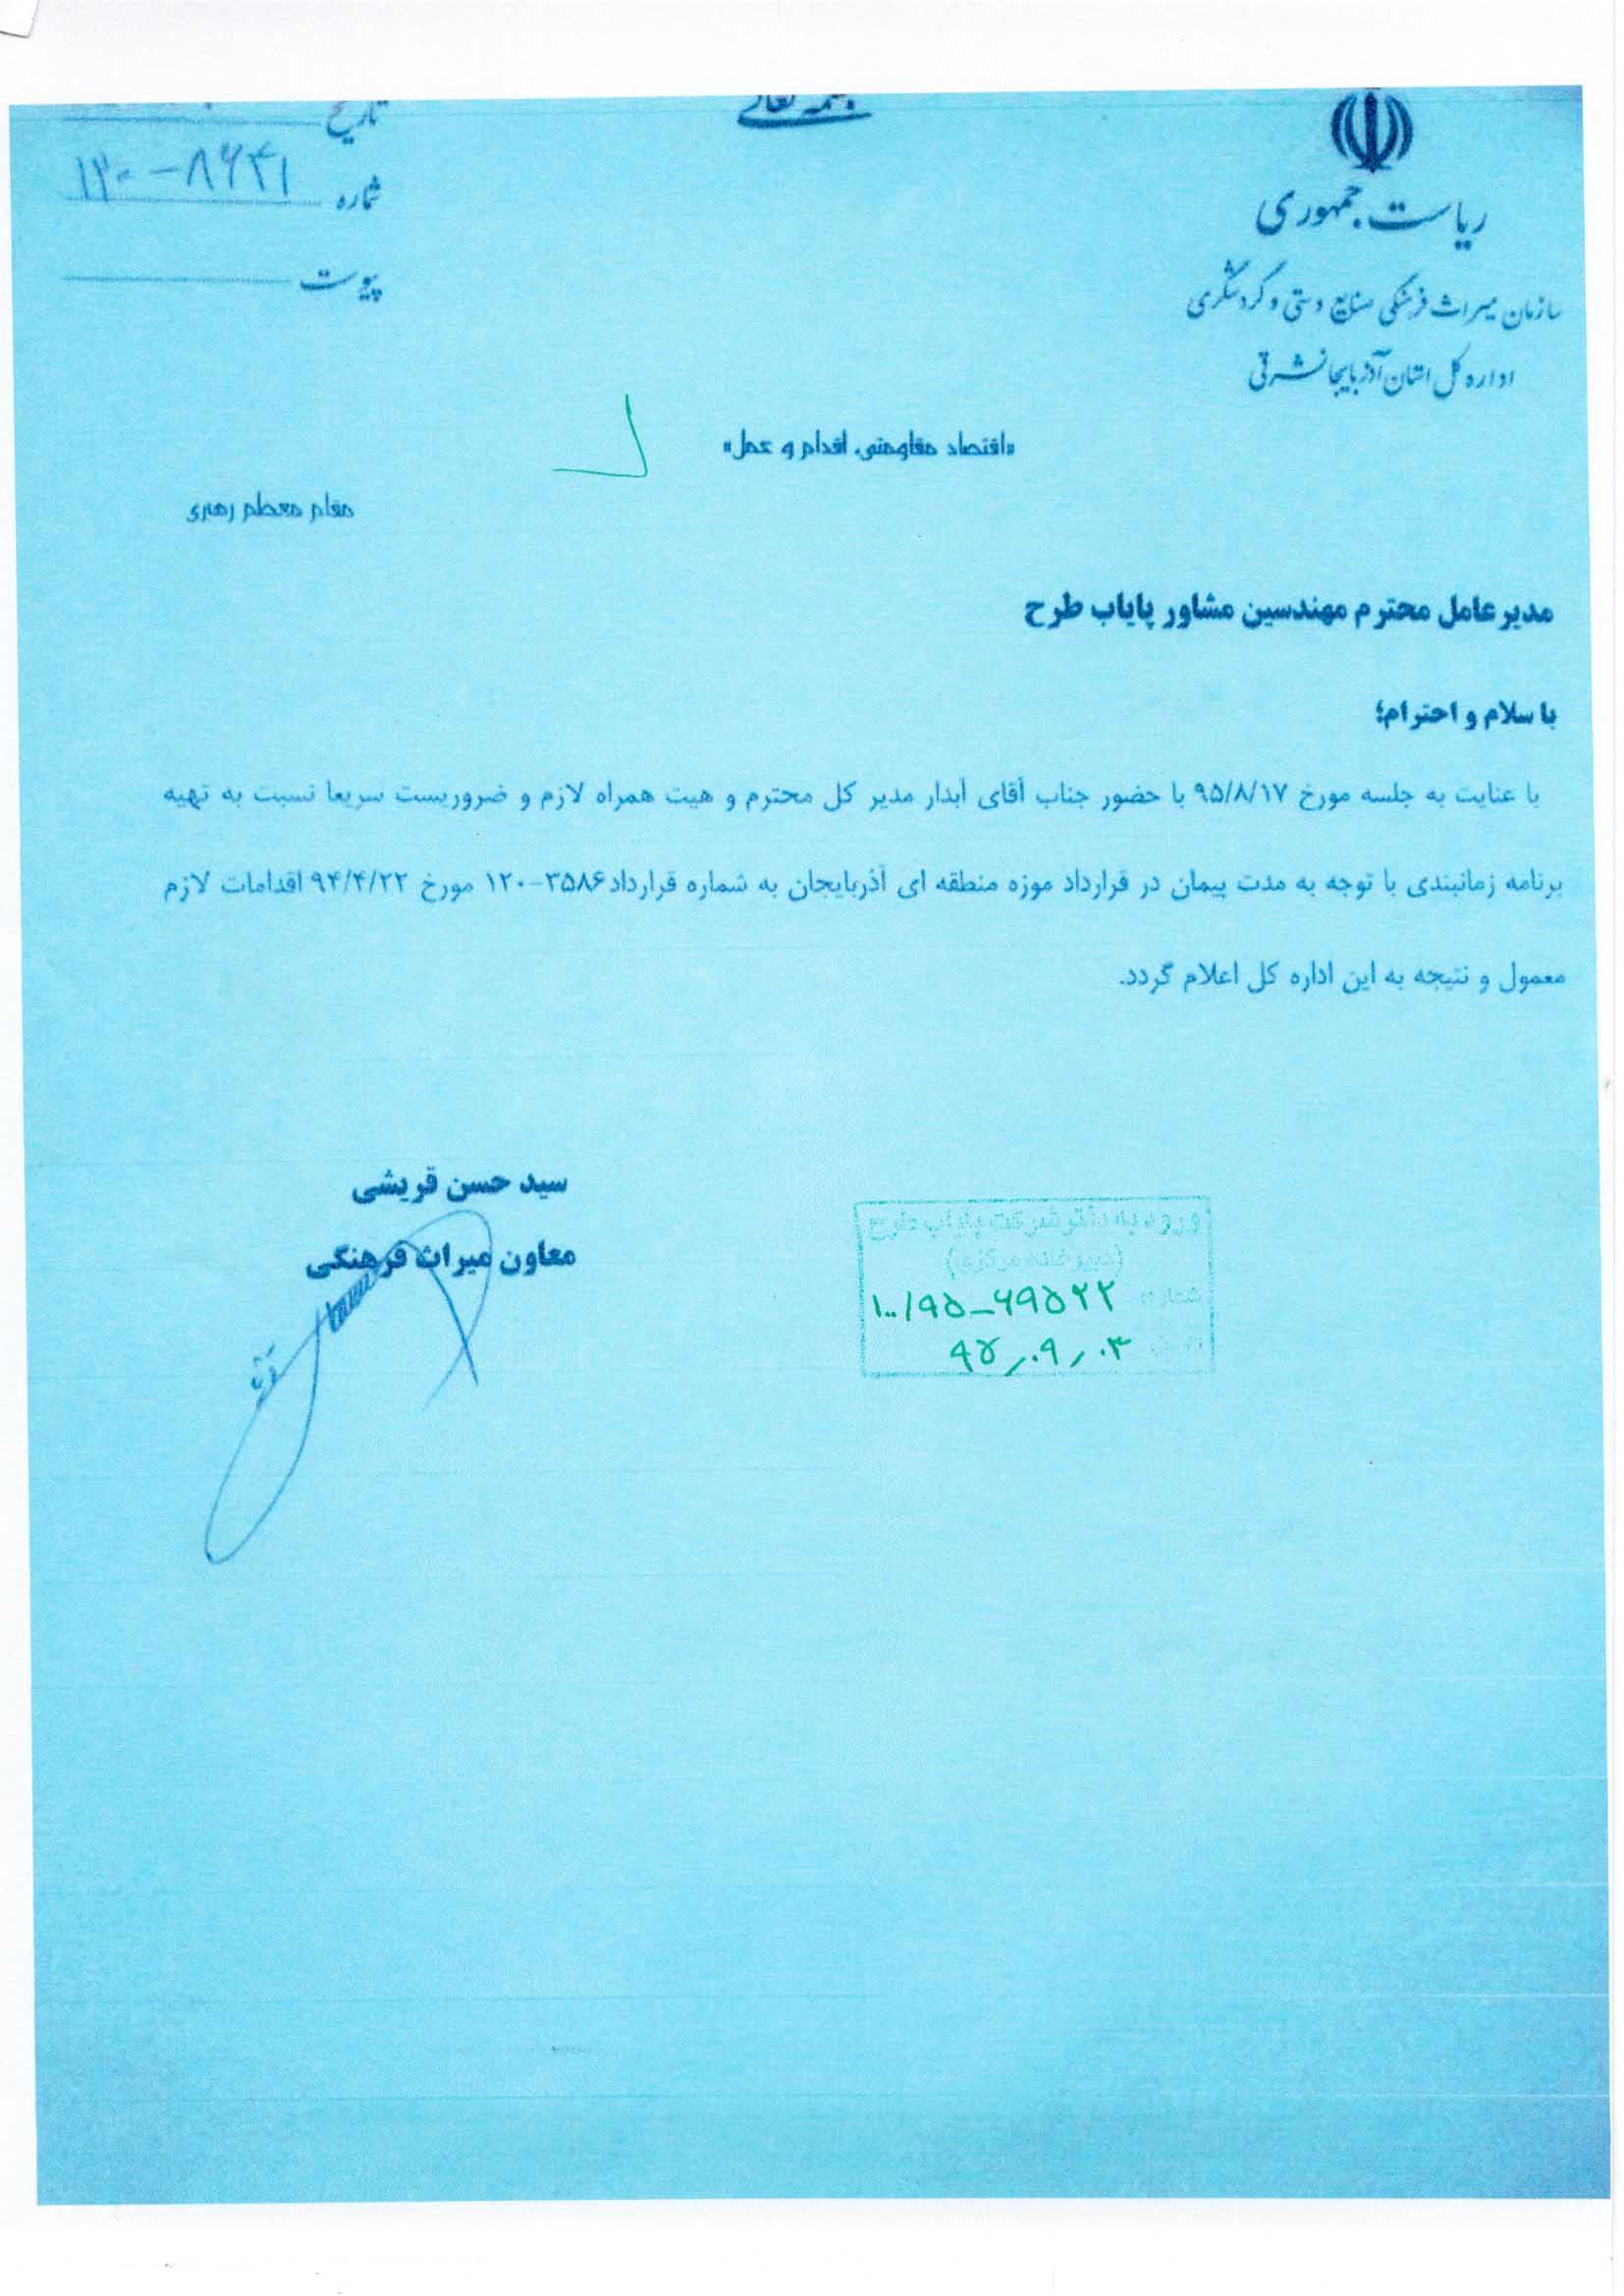 بسمه تعالی
ریاست جمهوری
سازمان میراث فرهنگی صنایع دستی و گردشگری
اداره کل استان آذربایجانشرقی
تاریخ
شماره ۱۲۰-۸۶۴۱
پیوست
«اقتصاد مقاومتی، اقدام و عمل»
مقام معظم رهبری
مدیر عامل محترم مهندسین مشاور پایاب طرح
با سلام و احترام؛
با عنایت به جلسه مورخ ۹۵/۸/۱۷ با حضور جناب آقای آبدار مدیر کل محترم و هیت همراه لازم و ضروریست سریعا نسبت به تهیه
برنامه زمانبندی با توجه به مدت پیمان در قرارداد موزه منطقه ای آذربایجان به شماره قرارداد ۳۵۸۶-۱۲۰ مورخ ۹۴/۴/۲۲ اقدامات لازم
معمول و نتیجه به این اداره کل اعلام گردد.
سید حسن قریشی
معاون میراث فرهنگی
ورود به دفتر شرکت پایاب طرح
(دبیرخانه مرکزی)
شماره: ۱۰۰/۹۵-۶۹۵۲۲
۹۵/۰۹/۰۳